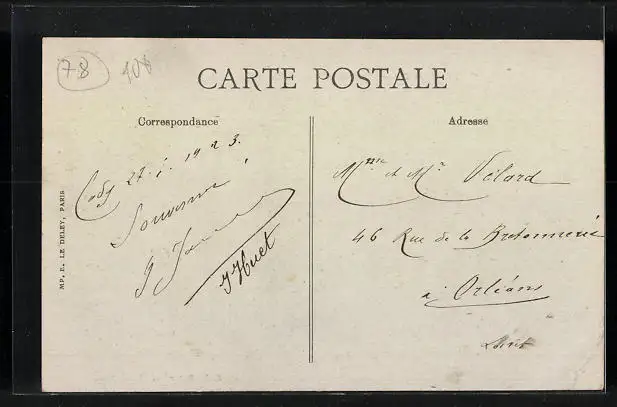 78
408
CARTE POSTALE
Correspondance
27. 1. 1923.
Souvenir
J Huet
MP. E. LE DELEY, PARIS
Adresse
Mme et Mr Vilard
46 Rue de la Bretonnerie
à Orléans
Loiret